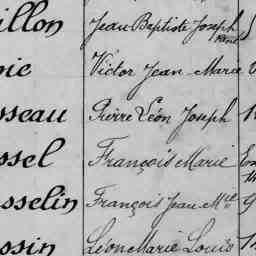 illon Jean Baptiste Joseph
René
Victor Jean Marie
sseau Pierre Léon Joseph
ssel François Marie
sselin François Jean Mie
ssin Léon Marie Louis